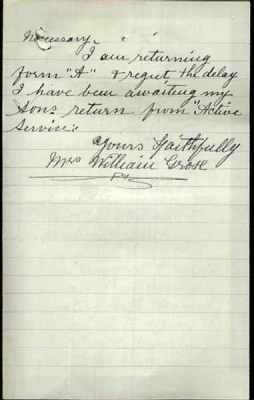 Necessary. " "
I am returning
form "A" & regret the delay
I have been awaiting my
sons return from "Active
Service".
Yours Faithfully
Mrs William Grose